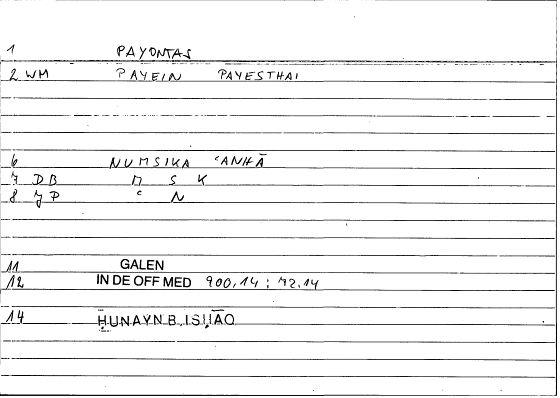 1 PAYONTAS
2 WM PAYEIN PAYESTHAI
6 NUMSIKA ʿANHĀ
7 DB M S K
8 JP ʿ N
11 GALEN
12 IN DE OFF MED 900,14 : 72.14
14 ḤUNAYN B. ISḤĀQ